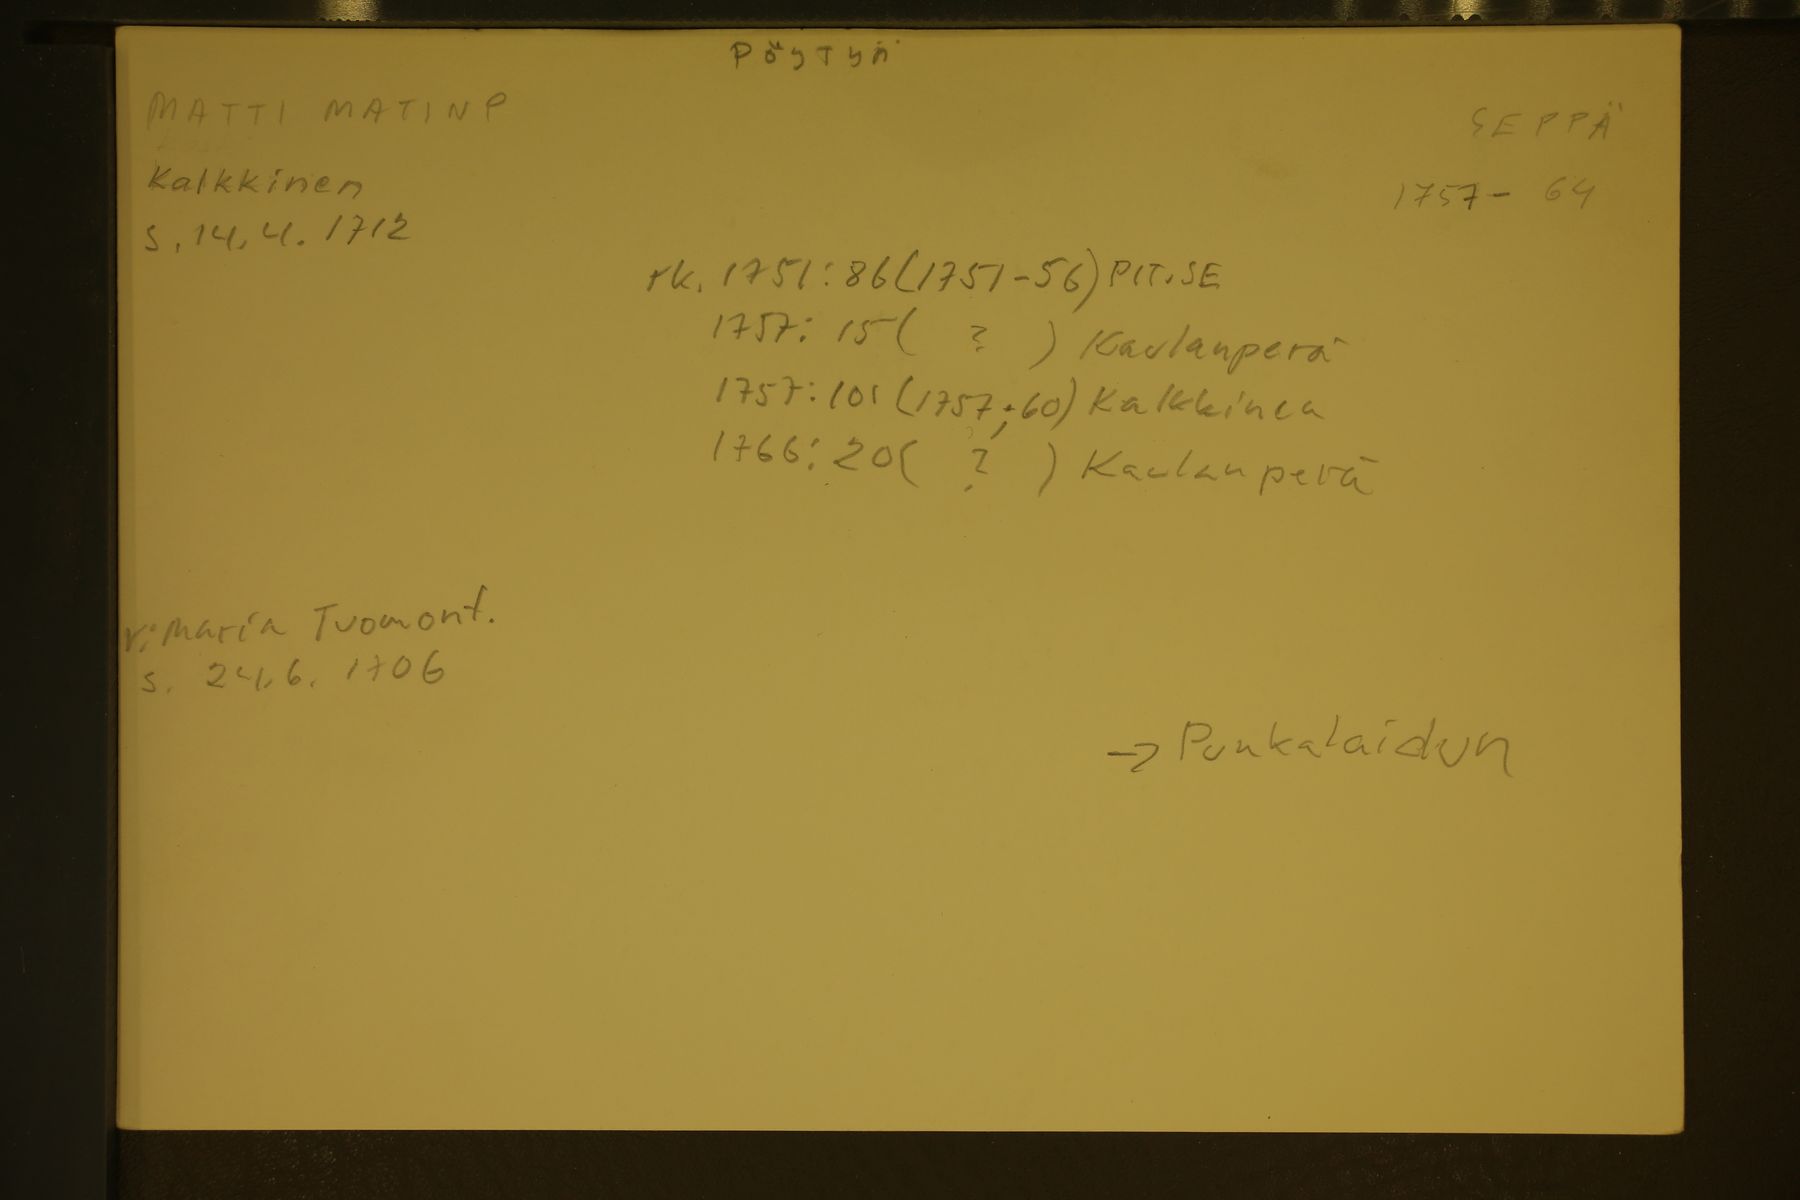 PÖYTYÄ
MATTI MATINP
SEPPÄ
Kalkkinen
1757 - 64
s. 14.4. 1712
rk. 1751: 86 (1751-56) PIT.SE
1757: 15 ( ? ) Kaulanperä
1757: 101 (1757, -60) Kalkkinen
1766: 20 ( ? ) Kaulanperä
v: Maria Tuomont.
s. 24.6. 1706
→ Punkalaidun